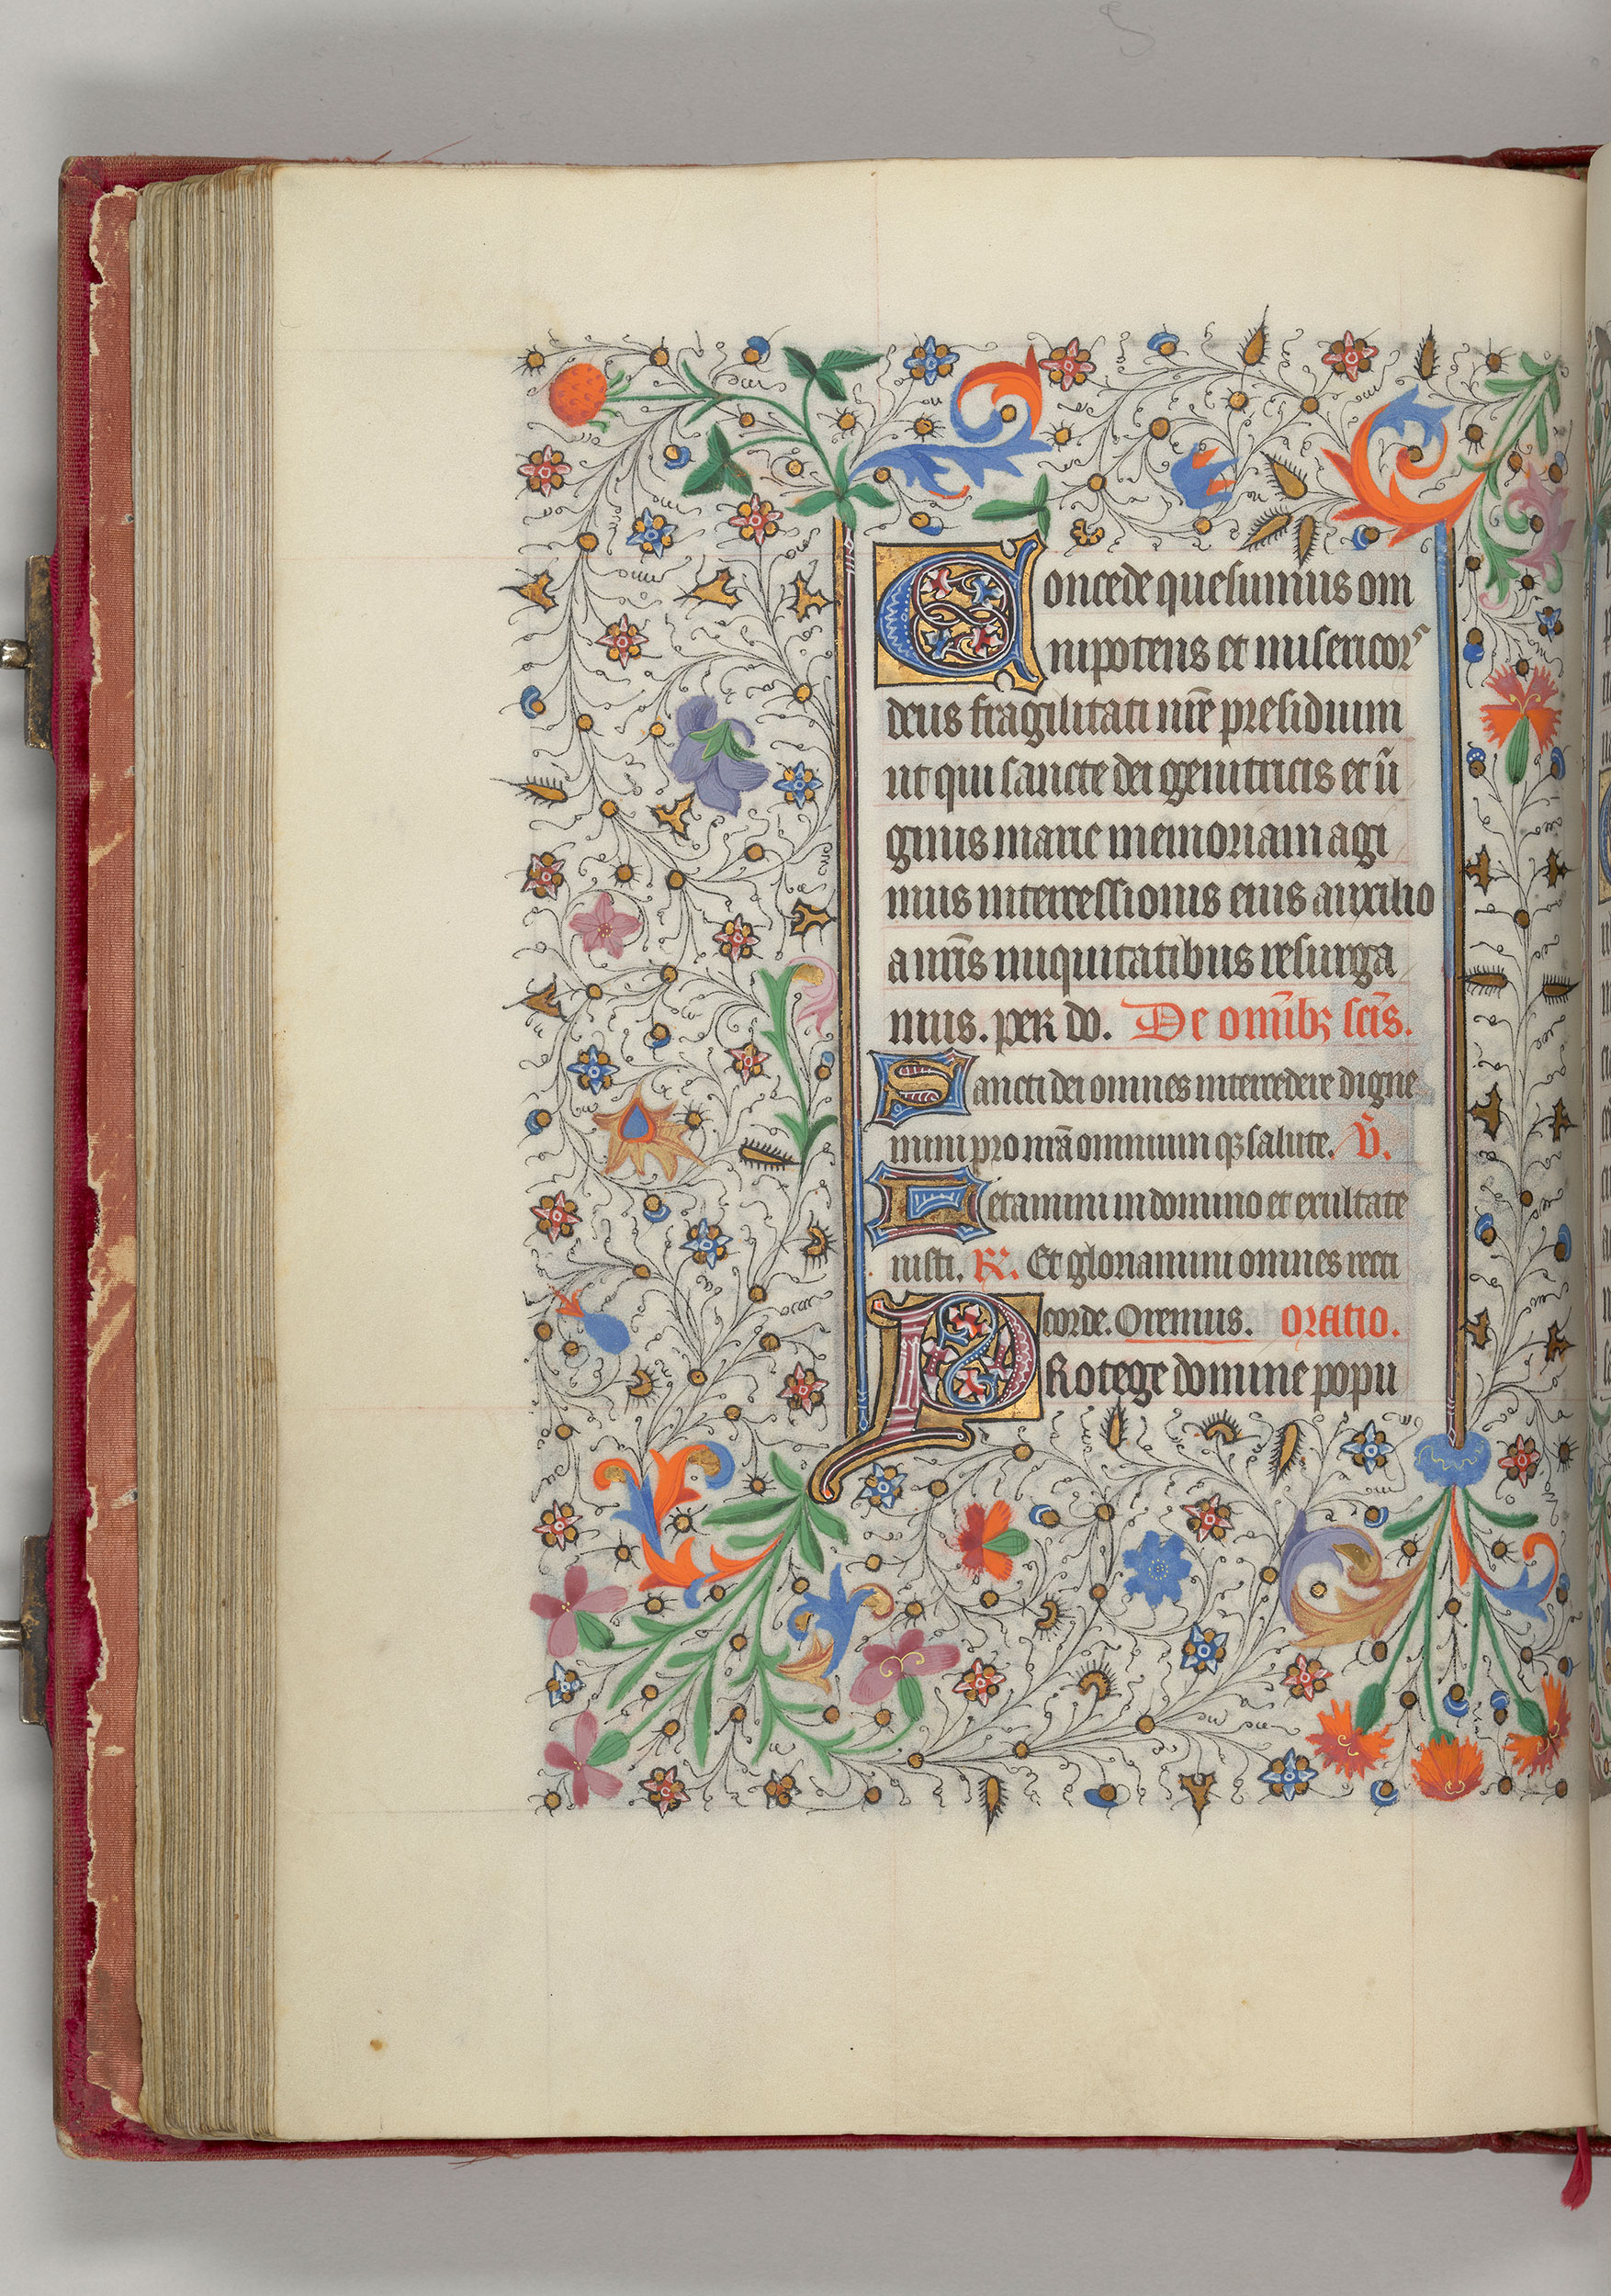 Concede quesumus om
nipotens et misericors
deus fragilitati nr̄e presidium
ut qui sancte dei genitricis et ū
ginis marie memoriam agi
mus intercessionis eius auxilio
a nr̄is iniquitatibus resurga
mus. per do. De omībꝫ sc̄is.
Sancti dei omnes intercedere digne
mini pro nr̄a omnium qꝫ salute. V̄.
Letamini in domino et exultate
iusti. R̄. Et gloriamini omnes recti
corde. Oremus. Oratio.
PRotege domine popu